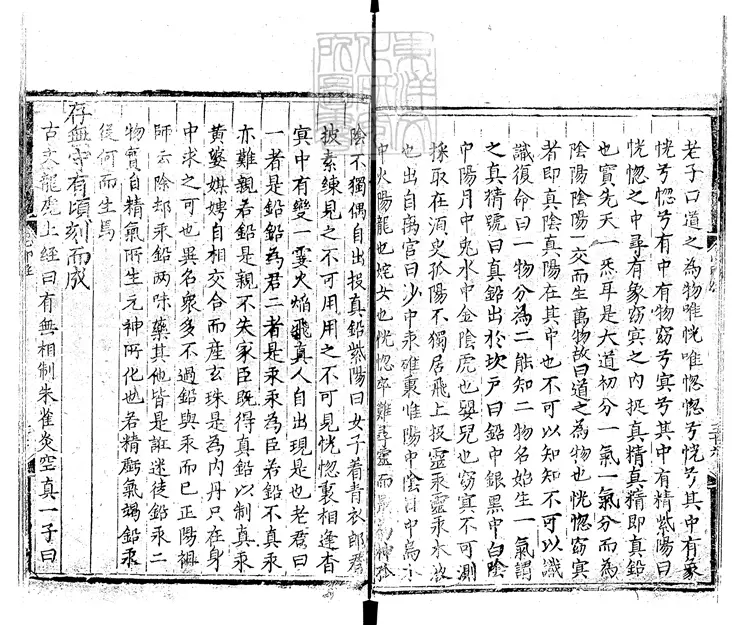 老子曰道之為物唯恍唯惚惚兮恍兮其中有象
恍兮惚兮其中有物窈兮冥兮其中有精紫陽曰
恍惚之中尋有象窈冥之內捉真精真精即真鉛
也實先天一炁耳是大道初分一氣一氣分而為
陰陽陰陽一交而生萬物故曰道之為物也恍惚窈冥
者即真陰真陽在其中也不可以知知不可以識
識復命曰一物分為二能知二物名始生一氣謂
之真精號曰真鉛出於坎戶曰鉛中銀黑中白陰
中陽月中兔水中金陰虎也嬰兒也窈冥不可測
採取在須臾孤陽不獨居飛上投靈汞靈汞本
也出自离宮曰沙中汞雄裏惟陽中陰日中烏
中火陽龍也姹女也恍惚卒難尋靈而最為神
陰不獨偶自出投真鉛紫陽曰女子着青衣郎君
披素練見之不可用用之不可見恍惚裏相逢杳
冥中有變一霎火熖飛真人自出現是也老君曰
一者是鉛鉛為君二者是汞汞為臣若鉛不真汞
亦難親若鉛是親不失家臣旣得真鉛以制真汞
黃婆媒娉自相交合而産玄珠是為內丹只在身
中求之可也異名衆多不過鉛與汞而已正陽祖
師云除却汞鉛两味藥其他皆是誑迷徒鉛汞二
物實自精氣所生元神所化也若精虧氣竭鉛汞
従何而生焉
存無守有頃刻而成
古文龍虎上經曰有無相制朱雀炎空真一子曰